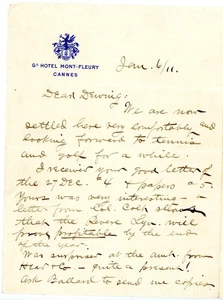 Gd HOTEL MONT-FLEURY
CANNES
Jan. 6/11.
Dear Dewing:
We are now
settled here very comfortably and
looking forward to tennis
and golf for a while.
I receive your good letter of
the 27 Dec. & papers
Yours was very interesting - a
letter from Col. shows
that the Lyn. will
prove profitable by the end
of the year.
Was surprised at the amt. from
Hear & Co - quite a present!
Ask Ballard to send me copies